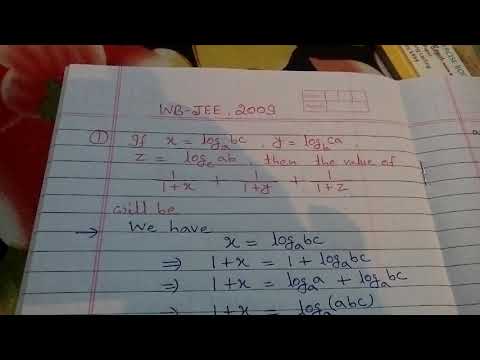 WB-JEE, 2009
① If x = log_a bc, y = log_b ca,
z = log_c ab, then the value of
1/(1+x) + 1/(1+y) + 1/(1+z)
will be
→ We have
x = log_a bc
⇒ 1+x = 1 + log_a bc
⇒ 1+x = log_a a + log_a bc
⇒ 1+x = log_a (abc)